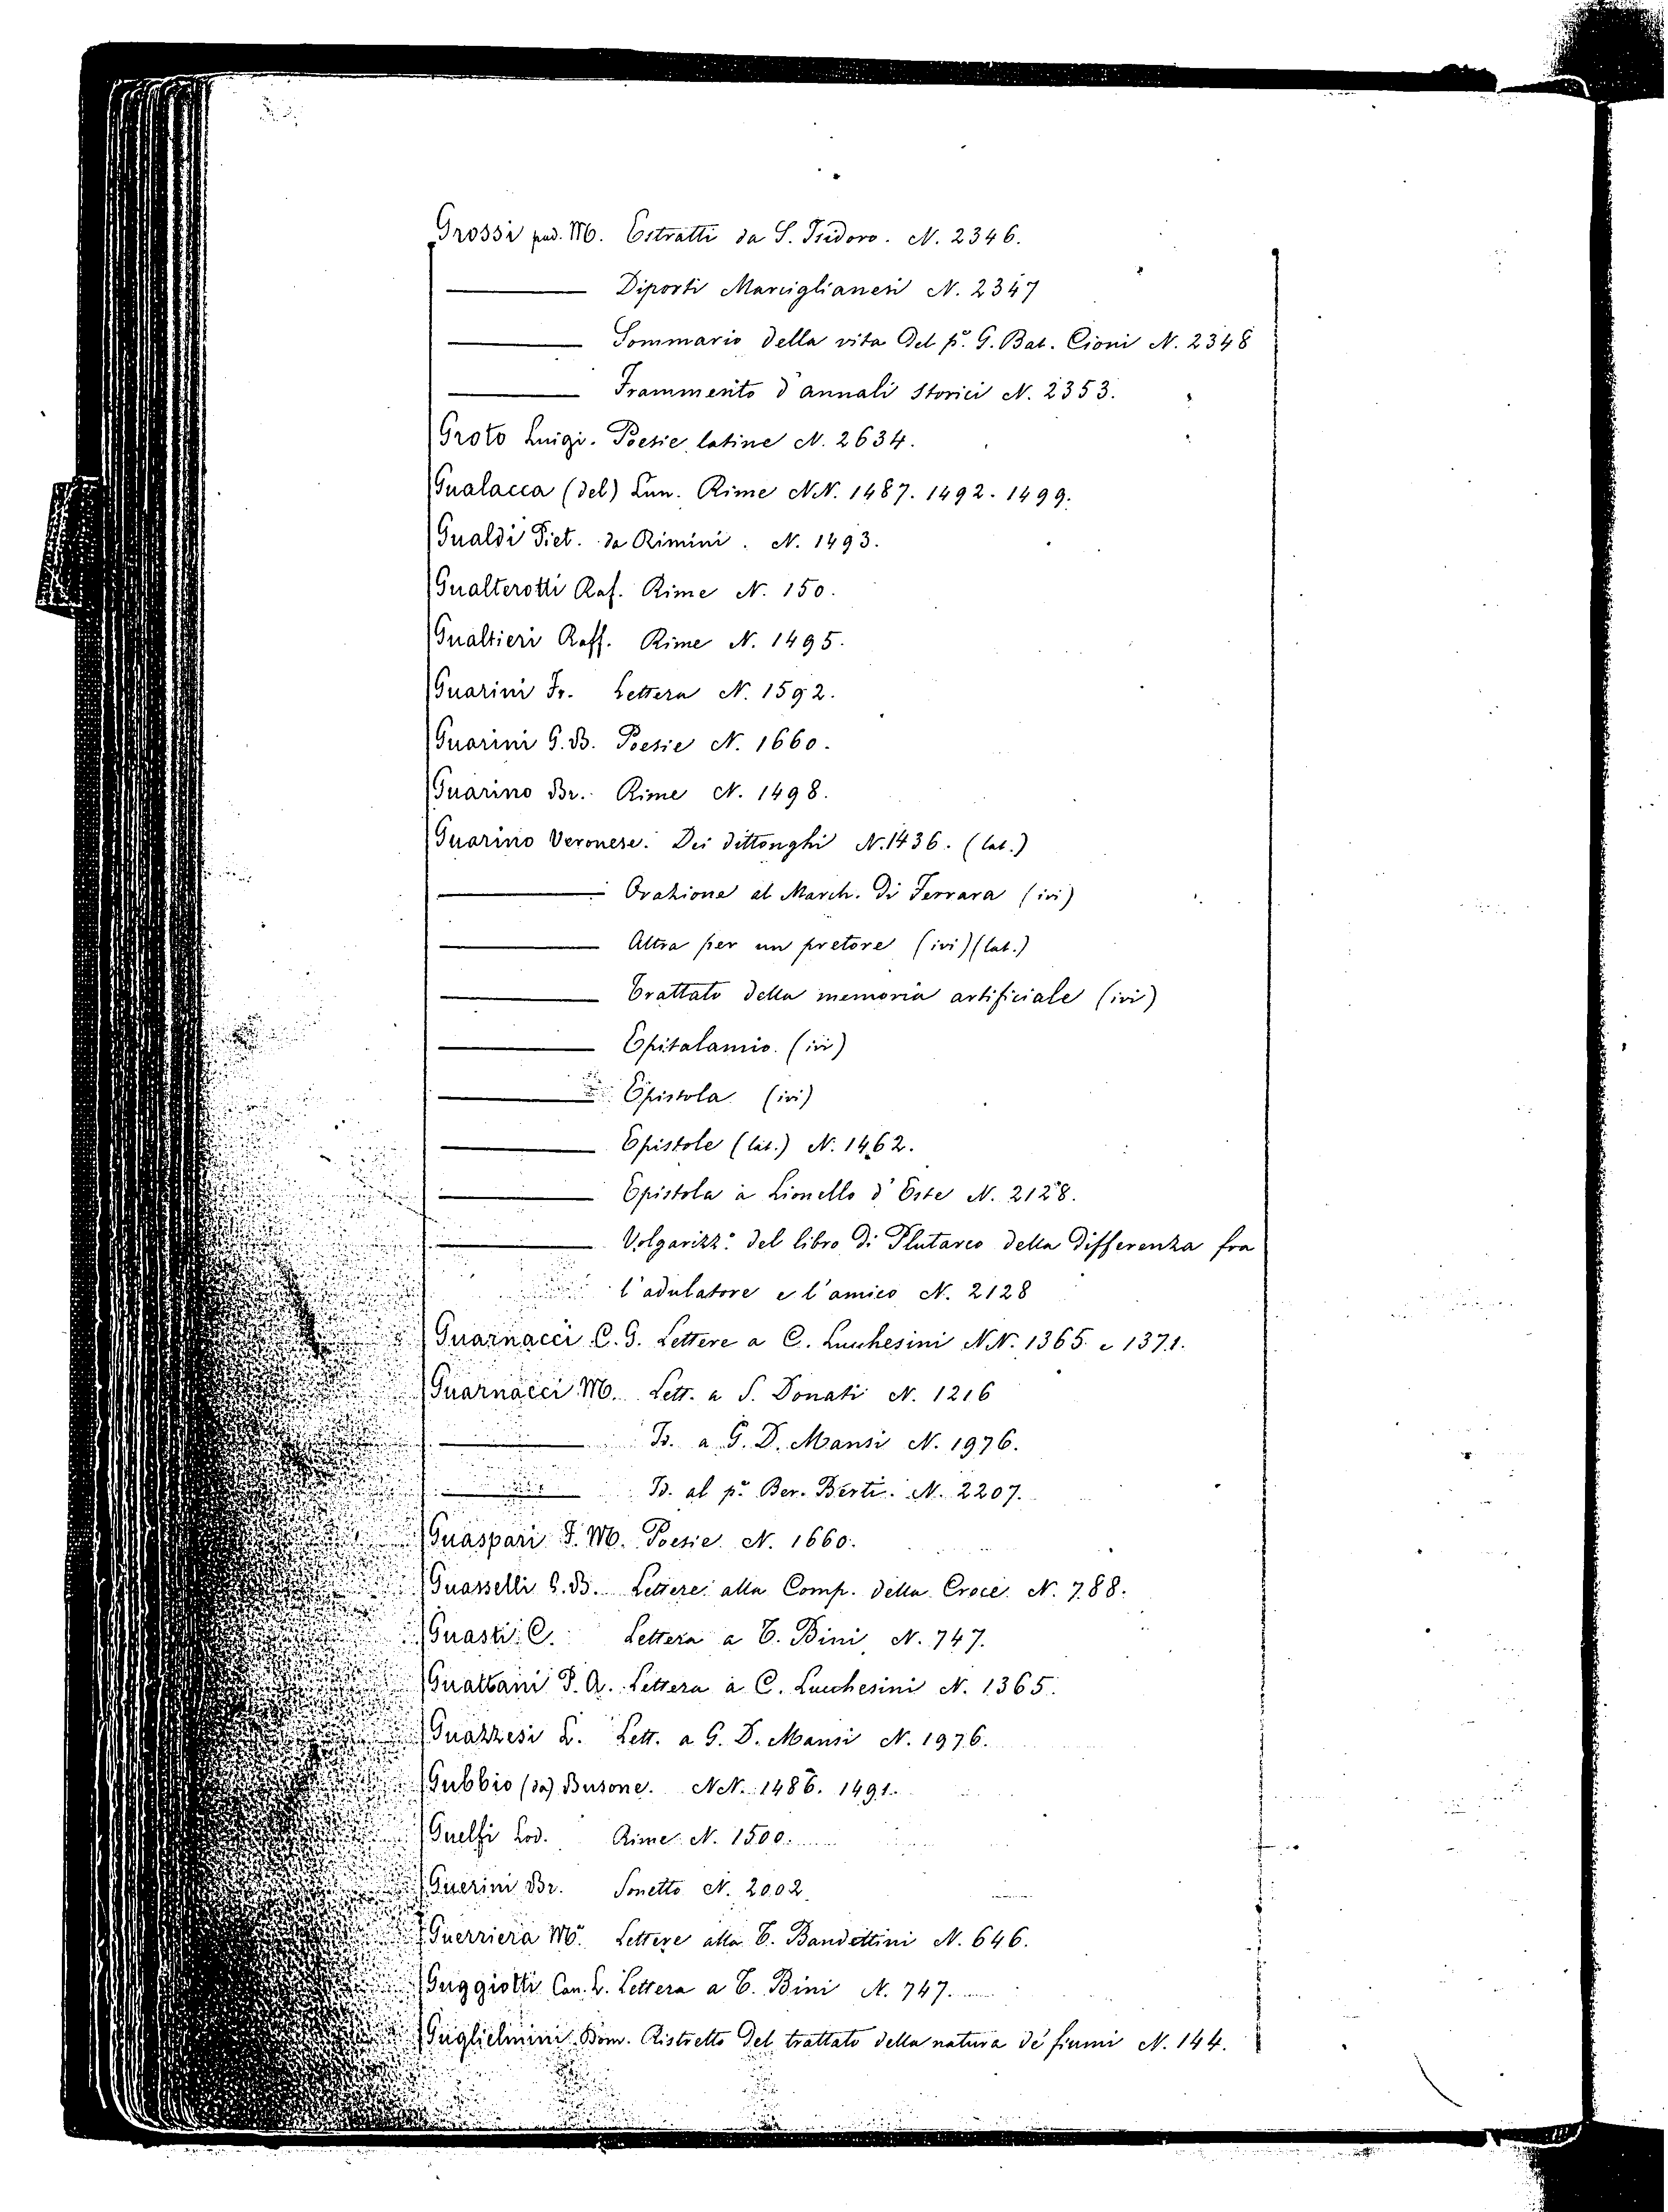 Grossi pad. M. Estratti da S. Isidoro. N. 2346.
——— Diporti Marciglianesi N. 2347
——— Sommario della vita del p.e G. Bat. Cioni N. 2348
——— Frammento d'annali storici N. 2353.
Groto Luigi. Poesie latine N. 2634.
Gualacca (del) Lun. Rime NN. 1487. 1492. 1499.
Gualdi Piet. da Rimini. N. 1493.
Gualterotti Raf. Rime N. 150.
Gualtieri Raff. Rime N. 1495.
Guarini Fr. Lettera N. 1592.
Guarini G. B. Poesie N. 1660.
Guarino Br. Rime N. 1498.
Guarino Veronese. Dei dittonghi N. 1436. (lat.)
——— Orazione al March. di Ferrara (ivi)
——— Altra per un pretore (ivi) (lat.)
——— Trattato della memoria artificiale (ivi)
——— Epitalamio. (ivi)
——— Epistola (ivi)
——— Epistole (lat.) N. 1462.
——— Epistola a Lionello d'Este N. 2128.
——— Volgarizz.o del libro di Plutarco della differenza fra
l'adulatore e l'amico N. 2128
Guarnacci C. G. Lettere a C. Lucchesini NN. 1365 e 1371.
Guarnacci M. Lett. a S. Donati N. 1216
——— a G. D. Mansi N. 1976.
——— al p.e Ber. Berti. N. 2207.
Guaspari F. M. Poesie N. 1660.
Guasselli G. B. Lettere alla Comp. della Croce N. 788.
Guasti C. Lettera a T. Bini N. 747.
Guattani G. A. Lettera a C. Lucchesini N. 1365.
Guazzesi L. Lett. a G. D. Mansi N. 1976.
Gubbio (da) Busone. NN. 1486. 1491.
Guelfi Lod. Rime N. 1500.
Guerini Br. Sonetto N. 2002.
Guerriera M.a Lettere alla T. Bandettini N. 646.
Guggiotti Can. L. Lettera a T. Bini N. 747.
Guglielmini Dom. Ristretto del trattato della natura de' fiumi N. 144.